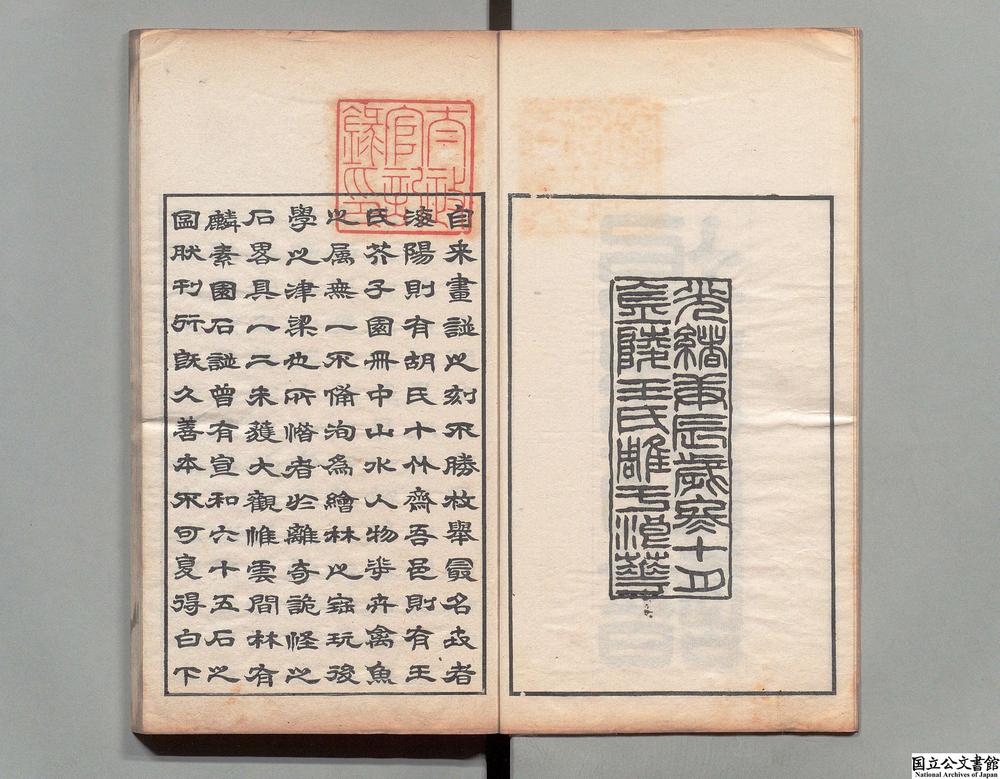 光緒庚辰歲冬十月
金陵王氏雕于
太政
官記
録印
自来畫譜之刻不勝枚舉最名世者
海陽則有胡氏十竹齋吾邑則有王
氏芥子園冊中山水人物華卉禽魚
之属無一不備洵為繪林之寶玩後
學之津梁也所惜者於離奇詭怪之
石畧具一二未獲大觀惟雲間林有
麟素園石譜曾有宣和六十五石之
圖肰刊行既久善本不可夏得白下
国立公文書館
National Archives of Japan